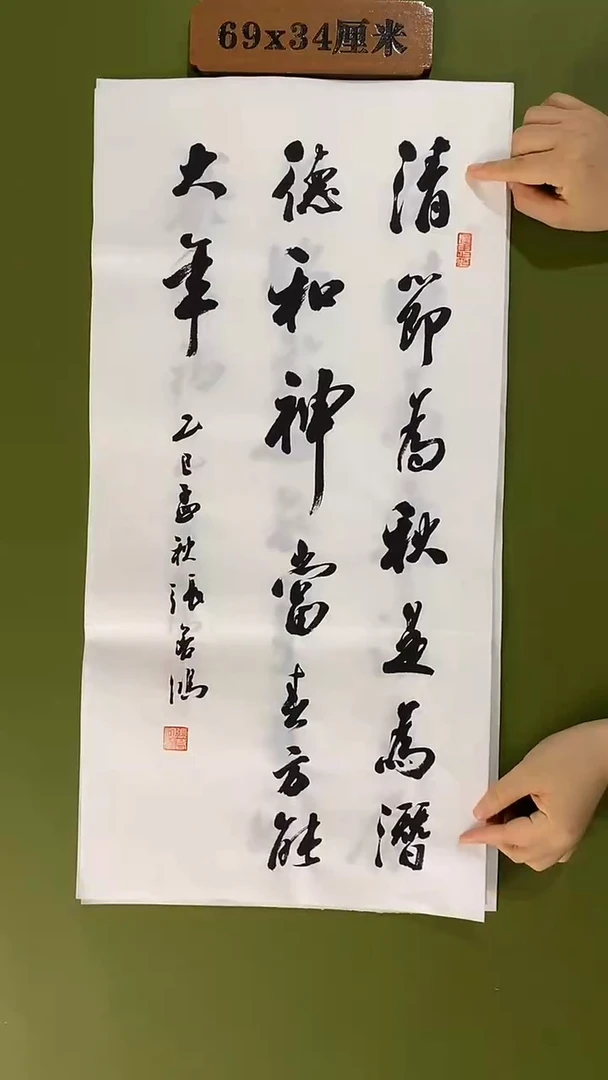 69x34厘米
清節為秋是為潛
德和神當春方能
大年
乙巳孟秋張若鴻